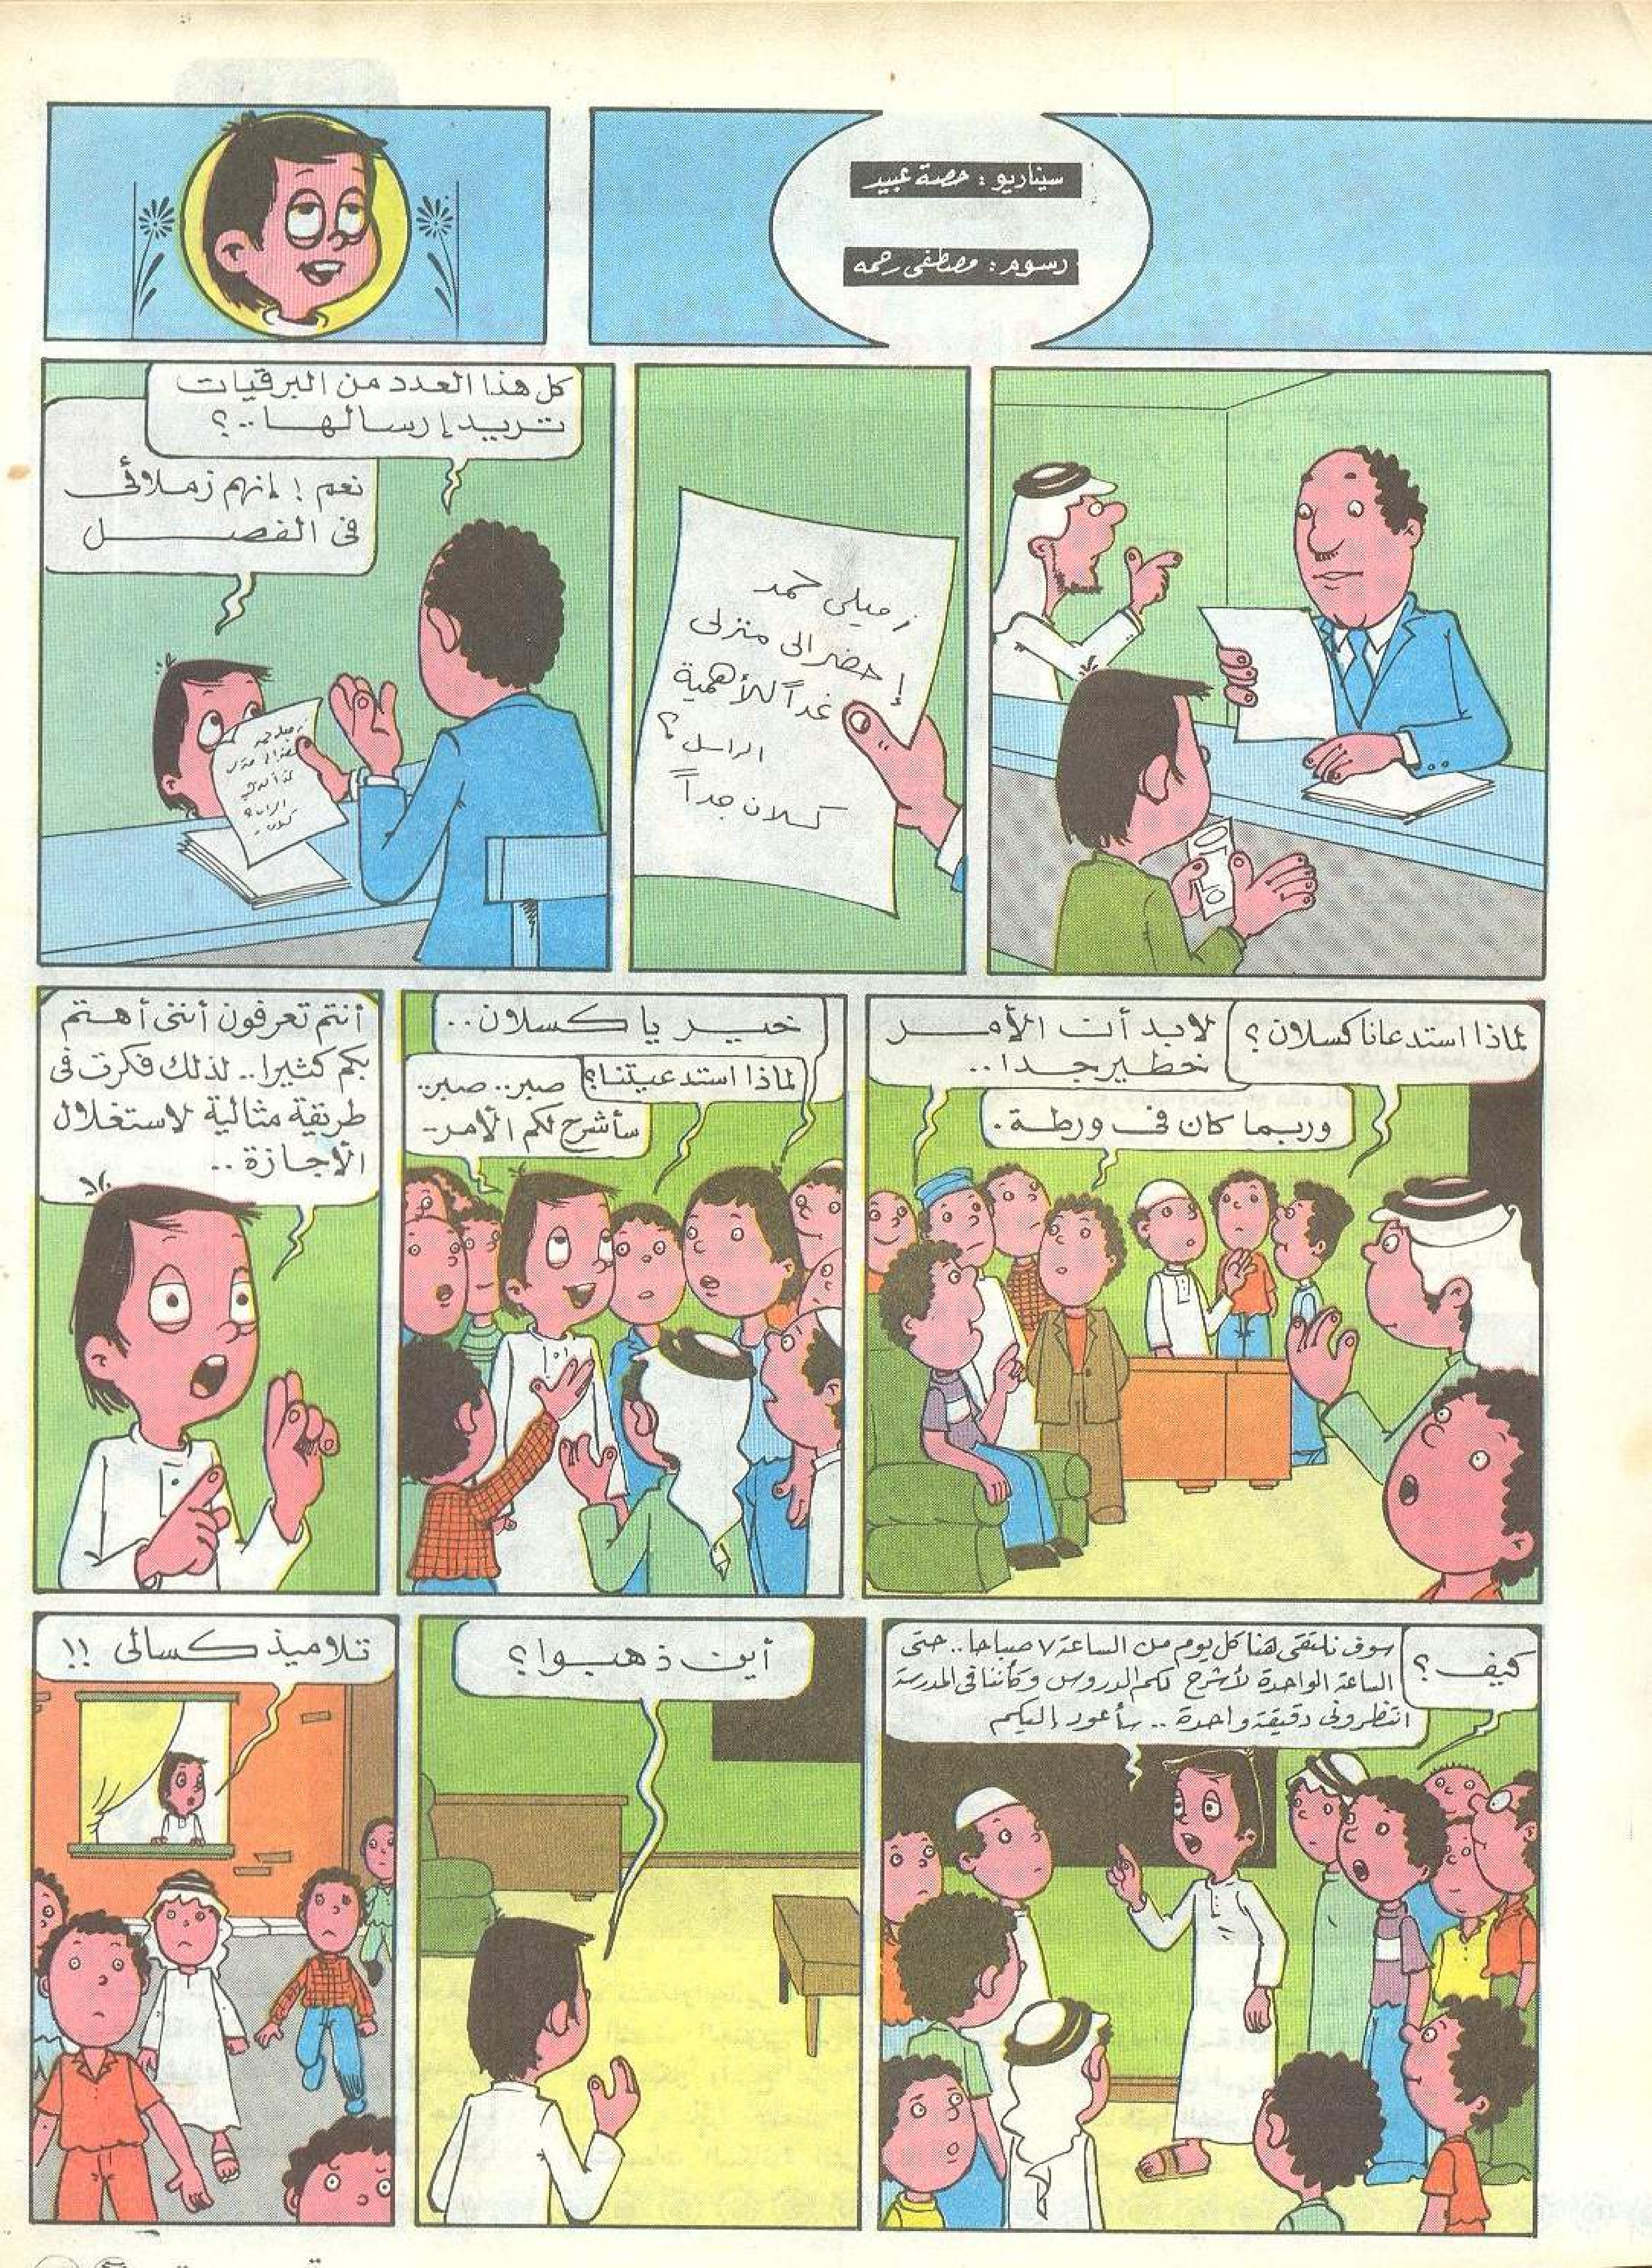 سيناريو : حصة عبيد
رسوم : مصطفى رحمه
زميلى حمد
إحضر الى منزلى
غداً للأهمية
الراسل ؟
كسلان جداً
كل هذا العدد من البرقيات
تريد إرسالها..؟
نعم ! إنهم زملائى
فى الفصل
لماذا استدعانا كسلان ؟
لابد أن الأمر
خطير جدا..
وربما كان فى ورطة.
خير يا كسلان..
لماذا استدعيتنا؟
صبر.. صبر..
سأشرح لكم الأمر..
أنتم تعرفون أننى أهتم
بكم كثيرا.. لذلك فكرت فى
طريقة مثالية لاستغلال
الأجازة..
كيف ؟
سوف نلتقى هنا كل يوم من الساعة ٧ صباحا.. حتى
الساعة الواحدة لأشرح لكم الدروس وكأننا فى المدرسة
انتظرونى دقيقة واحدة .. سأعود إليكم
أين ذهبوا ؟
تلاميذ كسالى !!